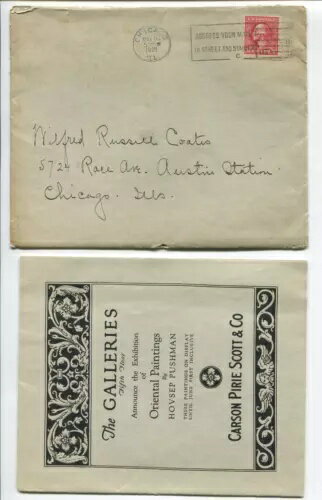 CHICAGO
ILL.
ADDRESS YOUR M
TO STREET AND NUM
Wilfred Russell Coates
5724 Race Ave. Austin Station
Chicago. Ills.
The GALLERIES
Fifth Floor
Announce the Exhibition
of
Oriental Paintings
By
HOVSEP PUSHMAN
THESE PAINTINGS ON DISPLAY
UNTIL JUNE FIRST INCLUSIVE
CARSON PIRIE SCOTT & CO